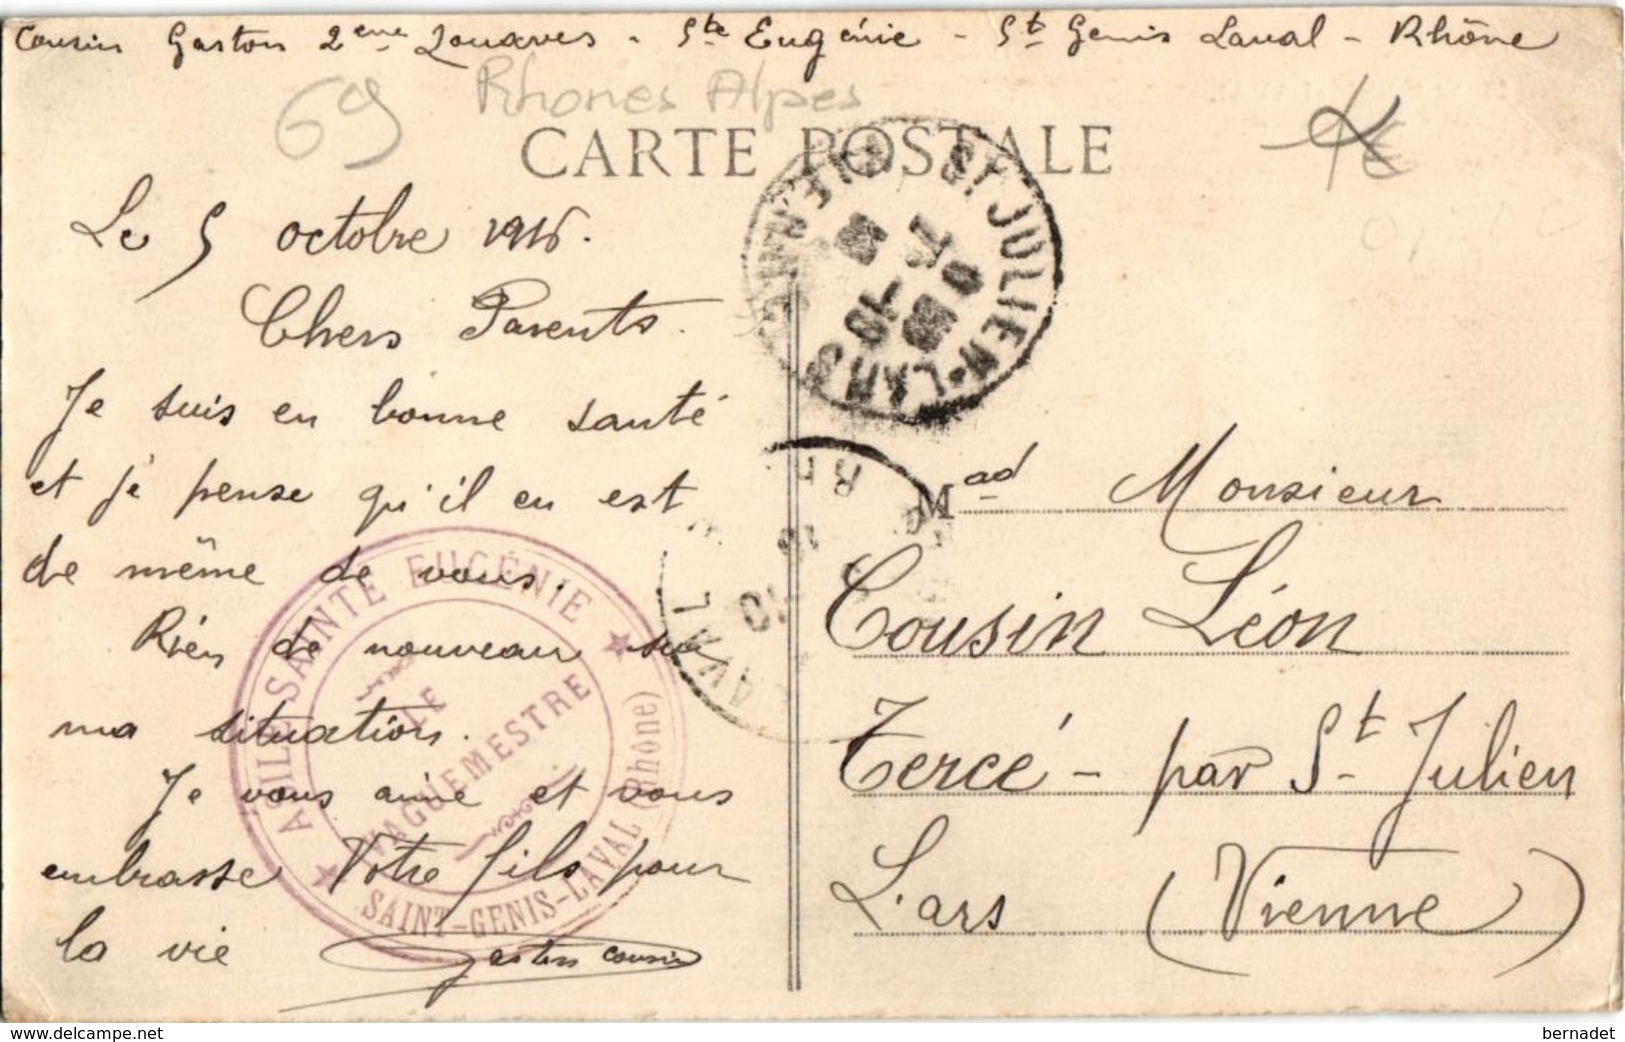 Cousin Gaston 2eme Zouaves - Ste Eugénie - St Genis Laval - Rhône
69 Rhones Alpes
CARTE POSTALE
Le 5 octobre 1916.
Chers Parents.
Je suis en bonne santé
et je pense qu'il en est
de même de vous.
Rien de nouveau sur
ma situation.
Je vous aime et vous
embrasse Votre fils pour
la vie
Gaston Cousin
ST JULIEN-L'ARS
VIENNE
LAVAL
ASILE SAINTE EUGÉNIE
LE
VAGUEMESTRE
SAINT-GENIS-LAVAL (Rhône)
Mad Monsieur
Cousin Léon
Tercé - par St Julien
L'ars (Vienne)
www.delcampe.net
bernadet